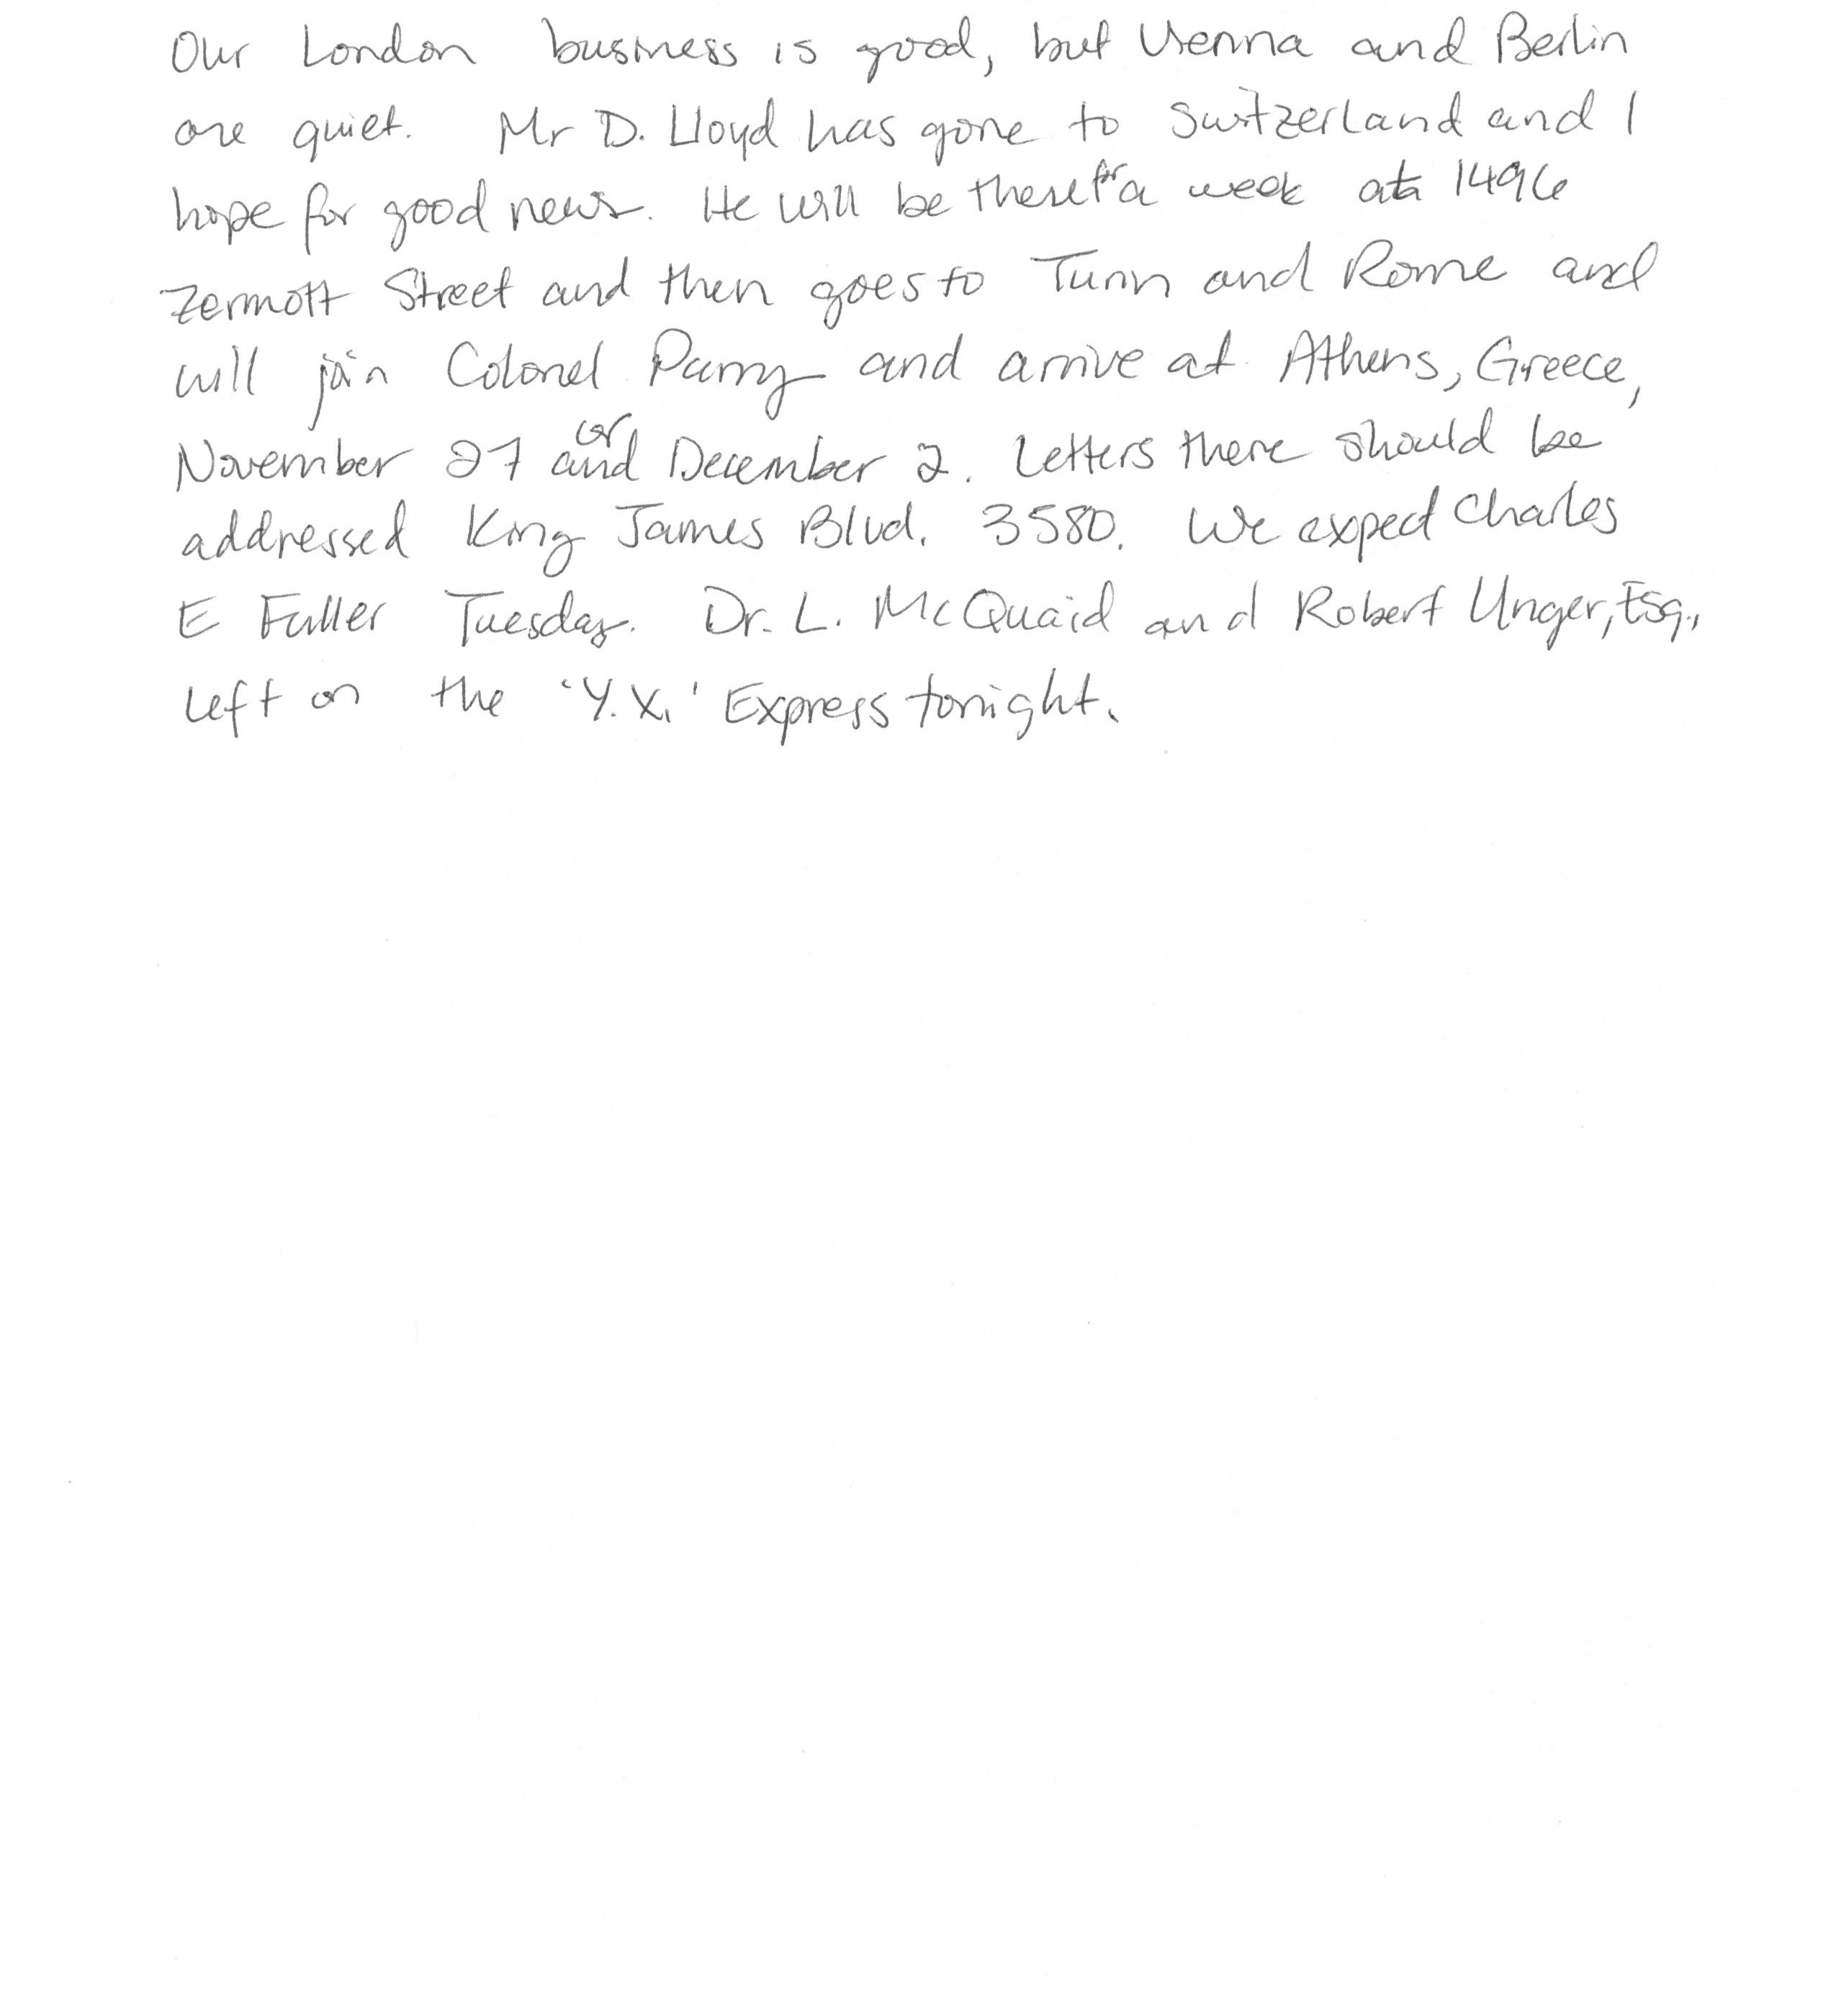 Our London business is good, but Vienna and Berlin
are quiet. Mr D. Lloyd has gone to Switzerland and I
hope for good news. He will be there for a week at 1496
Zermott Street and then goes to Turin and Rome and
will join Colonel Parry and arrive at Athens, Greece,
November 27 or December 2. Letters there should be
addressed King James Blvd. 3580. We expect Charles
E Fuller Tuesday. Dr. L. McQuaid and Robert Unger, Esq.,
left on the 'Y.X.' Express tonight.